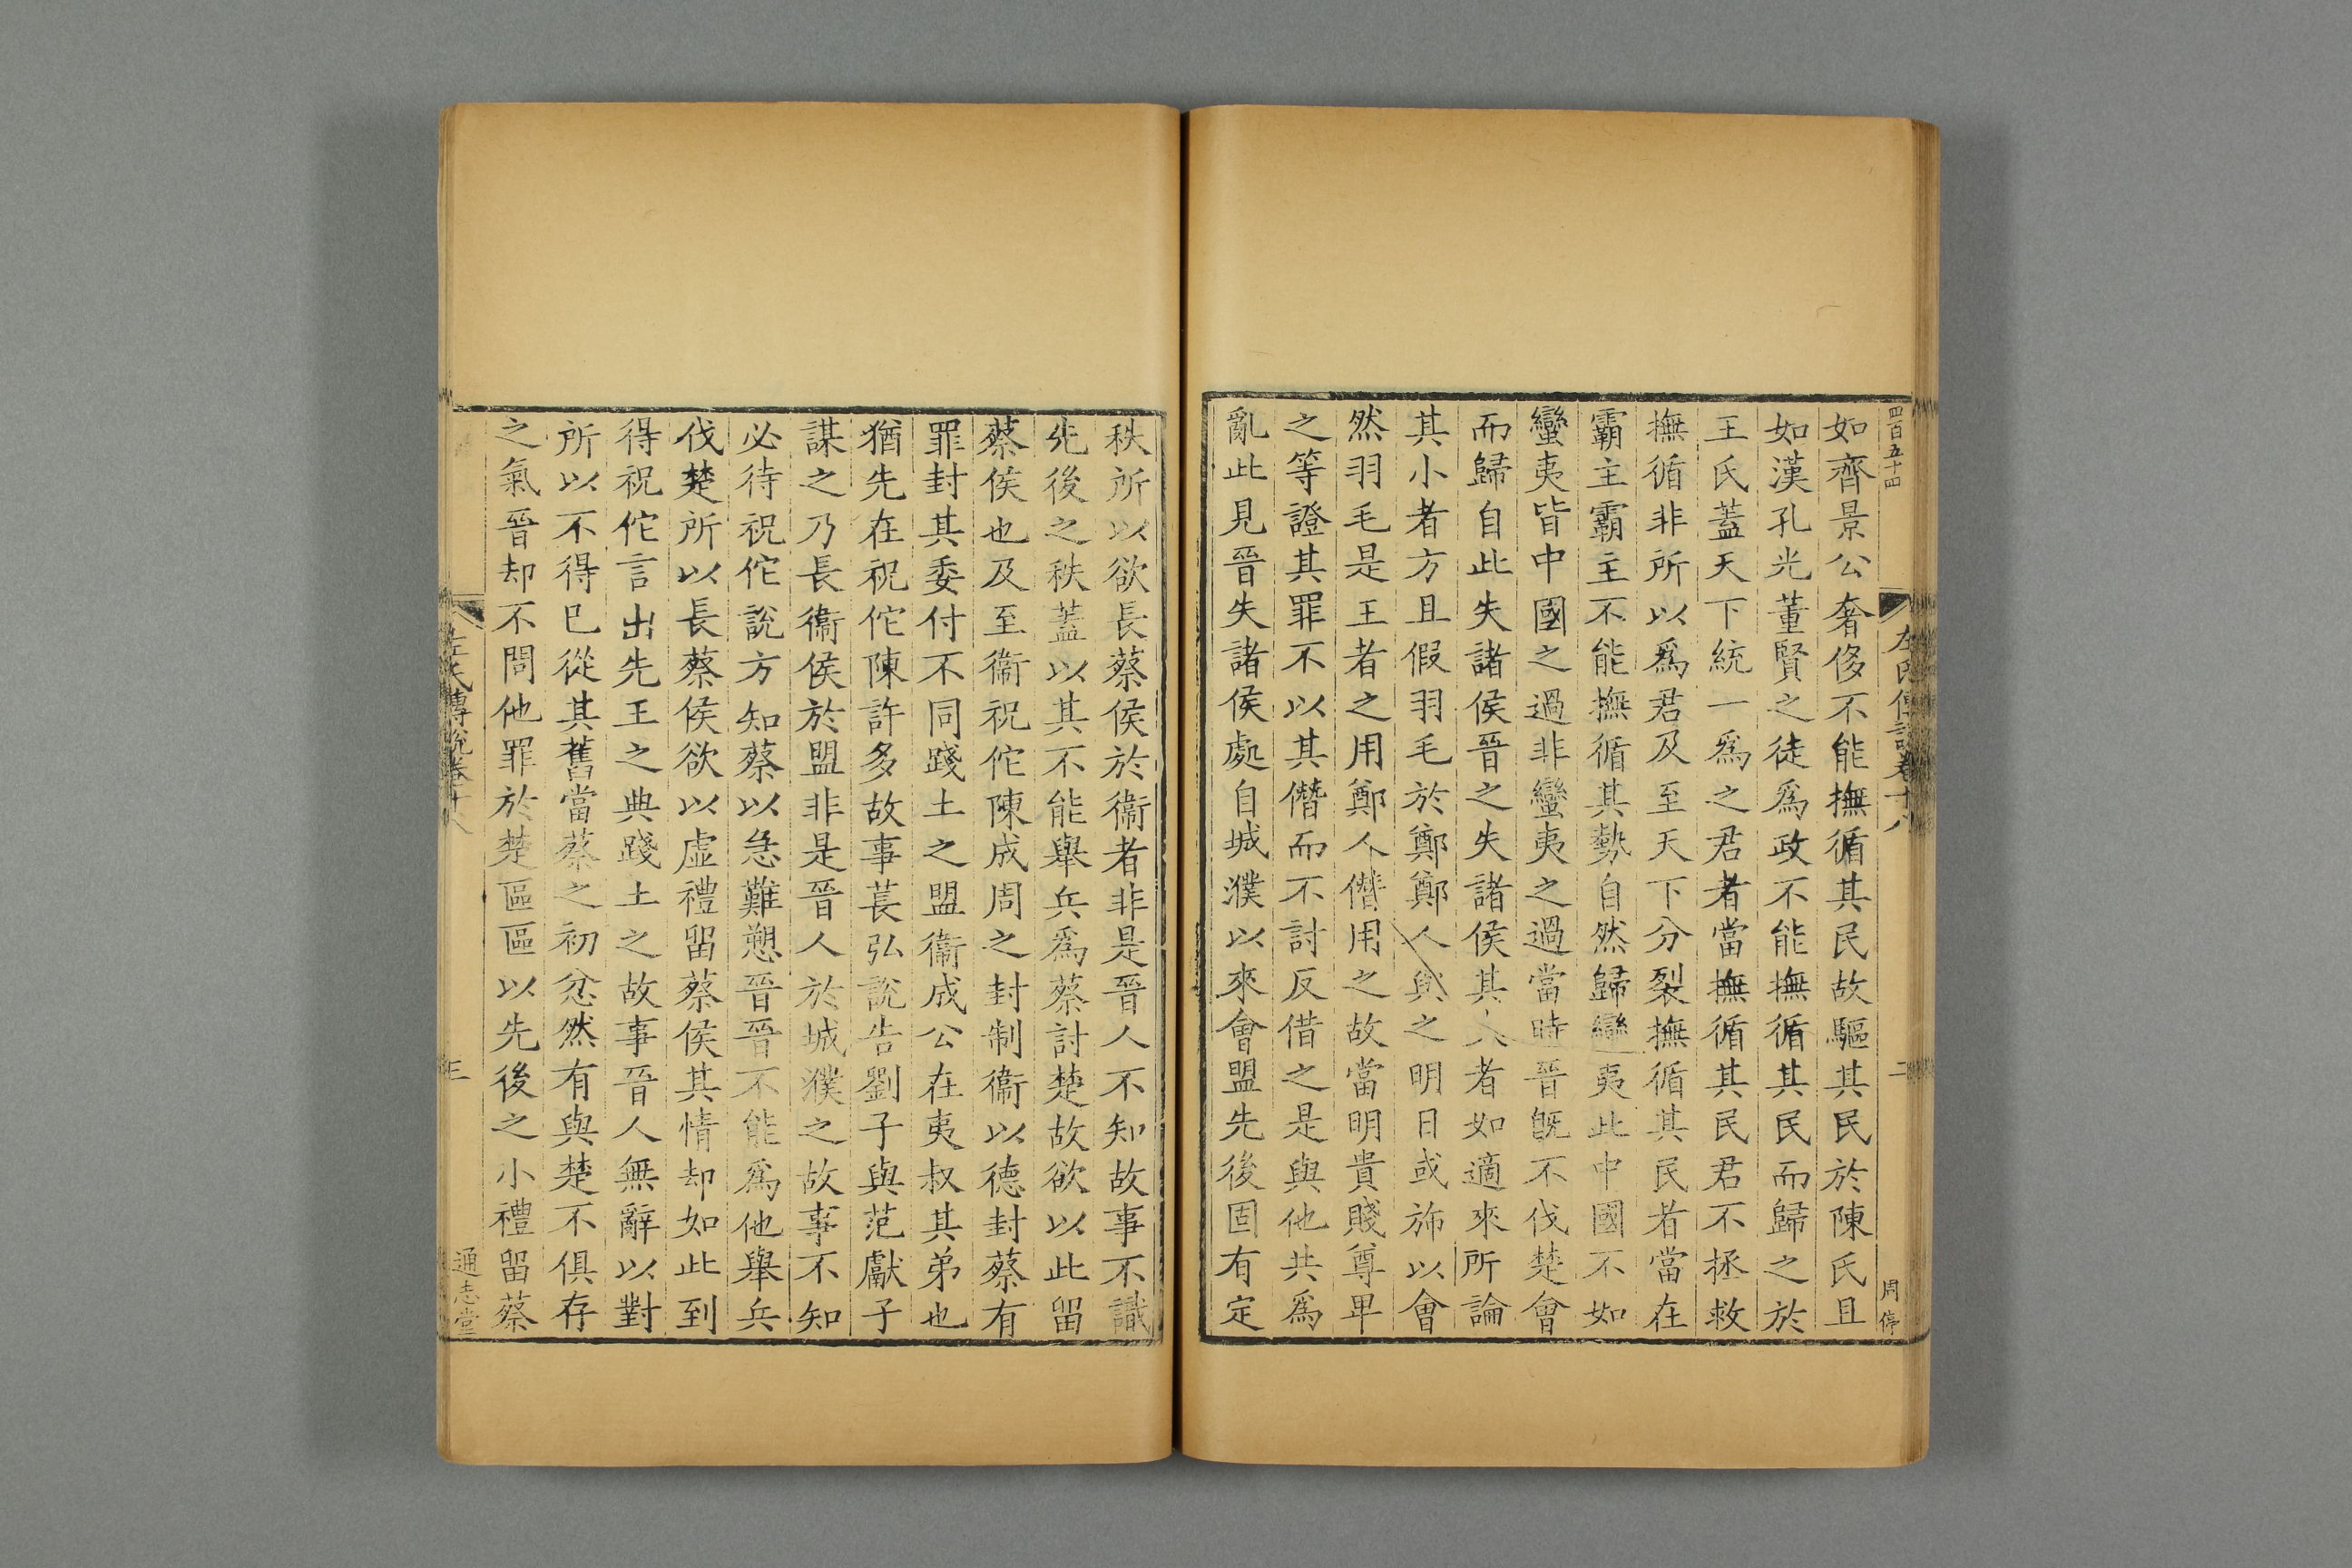 四百五十四
左氏傳說卷十八
二
周停
如齊景公奢侈不能撫循其民故驅其民於陳氏且
如漢孔光董賢之徒爲政不能撫循其民而歸之於
王氏蓋天下統一爲之君者當撫循其民君不拯救
撫循非所以爲君及至天下分裂撫循其民者當在
霸主霸主不能撫循其勢自然歸蠻夷此中國不如
蠻夷皆中國之過非蠻夷之過當時晉旣不伐楚會
而歸自此失諸侯晉之失諸侯其大者如適來所論
其小者方且假羽毛於鄭鄭人與之明日或旆以會
然羽毛是王者之用鄭人僭用之故當明貴賤尊卑
之等證其罪不以其僭而不討反借之是與他共爲
亂此見晉失諸侯處自城濮以來會盟先後固有定
秩所以欲長蔡侯於衞者非是晉人不知故事不識
先後之秩蓋以其不能舉兵爲蔡討楚故欲以此留
蔡侯也及至衞祝佗陳成周之封制衞以德封蔡有
罪封其委付不同踐土之盟衞成公在夷叔其弟也
猶先在祝佗陳許多故事萇弘說告劉子與范獻子
謀之乃長衞侯於盟非是晉人於城濮之故事不知
必待祝佗說方知蔡以急難愬晉晉不能爲他舉兵
伐楚所以長蔡侯欲以虛禮留蔡侯其情却如此到
得祝佗言出先王之典踐土之故事晉人無辭以對
所以不得已從其舊當蔡之初忿然有與楚不俱存
之氣晉却不問他罪於楚區區以先後之小禮留蔡
左氏傳說卷十八
三
通志堂